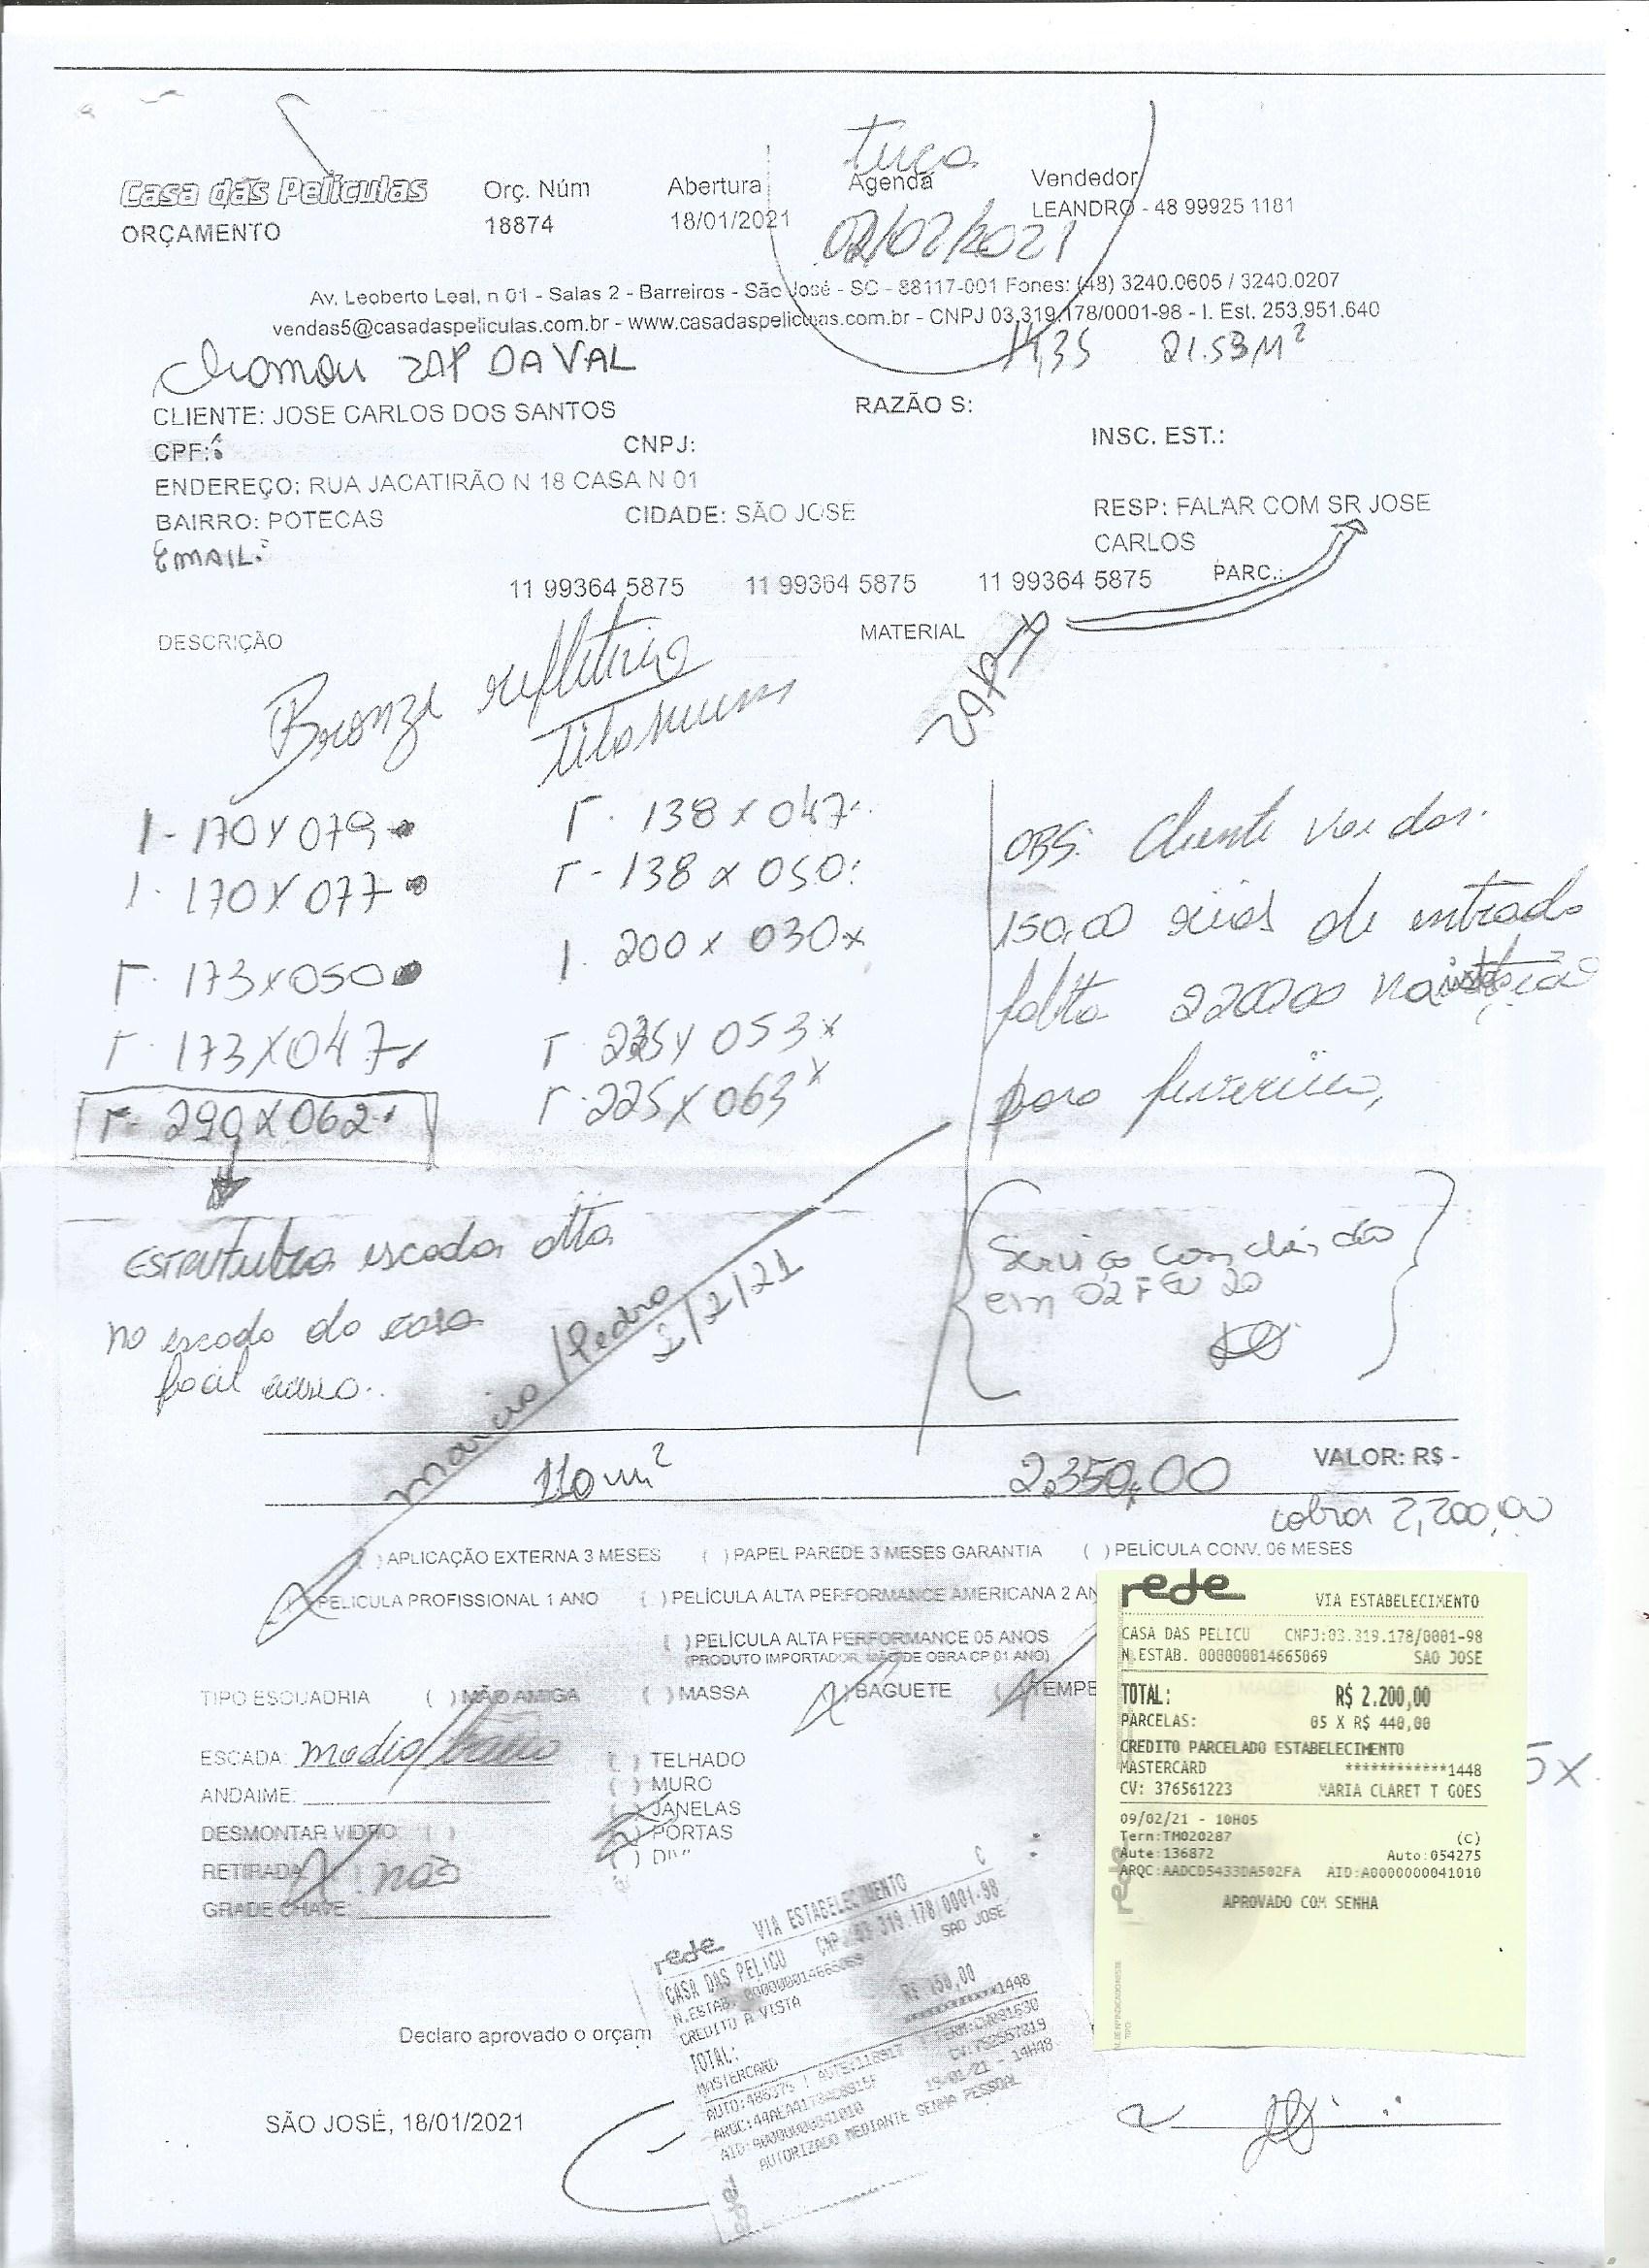 terça
Casa das Películas Orç. Núm Abertura Agenda Vendedor
ORÇAMENTO 18874 18/01/2021 02/02/2021 LEANDRO - 48 99925 1181
Av. Leoberto Leal, n 01 - Salas 2 - Barreiros - São José - SC - 88117-001 Fones: (48) 3240.0605 / 3240.0207
vendas5@casadaspeliculas.com.br - www.casadaspeliculas.com.br - CNPJ 03.319.178/0001-98 - I. Est. 253.951.640
Chamar ZAP DA VAL 11,35 21.53M²
CLIENTE: JOSE CARLOS DOS SANTOS RAZÃO S:
CPF: CNPJ: INSC. EST.:
ENDEREÇO: RUA JACATIRÃO N 18 CASA N 01
BAIRRO: POTECAS CIDADE: SÃO JOSE RESP: FALAR COM SR JOSE
CARLOS
EMAIL:
11 99364 5875 11 99364 5875 11 99364 5875 PARC.:
DESCRIÇÃO MATERIAL
Bronze refletivo
titanium
1 - 170 x 079
1 - 170 x 077
1 - 173 x 050
1 - 173 x 047
1 - 290 x 062
1 - 138 x 047
1 - 138 x 050
1 - 200 x 030 x
1 225 x 053 x
1 - 225 x 063 x
OBS: Cliente vai dar
150,00 reais de entrada
falta 2200,00
para fevereiro,
ESTRUTURA escada alta
na escada da casa
facil acesso..
Marcio / Pedro
2/2/21
Serviço concluido
em 02 FEV 20
110 m² 2.350,00 VALOR: R$ -
cobrar 2,200,00
( ) APLICAÇÃO EXTERNA 3 MESES ( ) PAPEL PAREDE 3 MESES GARANTIA ( ) PELÍCULA CONV. 06 MESES
(X) PELICULA PROFISSIONAL 1 ANO ( ) PELÍCULA ALTA PERFORMANCE AMERICANA 2 AN
( ) PELÍCULA ALTA PERFORMANCE 05 ANOS
(PRODUTO IMPORTADOR, MÃO DE OBRA CP 01 ANO)
TIPO ESQUADRIA ( ) MÃO AMIGA ( ) MASSA (X) BAGUETE (X) TEMPE
ESCADA: media/
( ) TELHADO
ANDAIME:
( ) MURO
( ) JANELAS
DESMONTAR VIDRO ( )
( ) PORTAS
RETIRADA X não
( ) DIV
GRADE CHAVE:
5x.
rede VIA ESTABELECIMENTO
CASA DAS PELICU CNPJ:03.319.178/0001-98
N.ESTAB. 000000014665069 SAO JOSE
TOTAL: R$ 2.200,00
PARCELAS: 05 X R$ 440,00
CREDITO PARCELADO ESTABELECIMENTO
MASTERCARD ************1448
CV: 376561223 MARIA CLARET T GOES
09/02/21 - 10H05
Term:TM020287 (C)
Aute:136872 Auto:054275
ARQC:AADCD5433DA502FA AID:A0000000041010
APROVADO COM SENHA
rede
rede VIA ESTABELECIMENTO C
CASA DAS PELICU CNPJ 03.319.178/0001-98
N.ESTAB. 000000014665069 SAO JOSE
CREDITO A VISTA
TOTAL: R$ 150,00
MASTERCARD ************1448
19/01/21 - 14H48
AID:A0000000041010
AUTORIZADO MEDIANTE SENHA PESSOAL
Declaro aprovado o orçam
SÃO JOSÉ, 18/01/2021